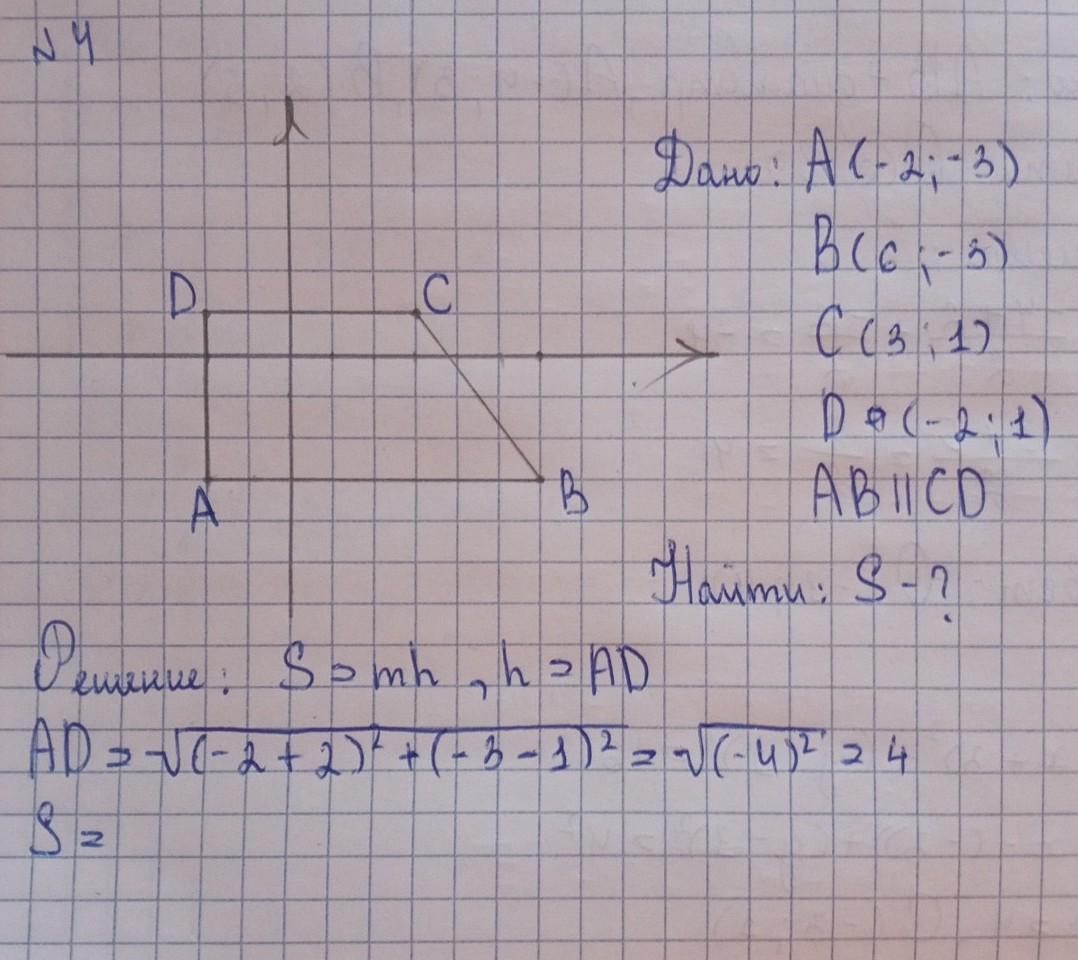 N4
Дано: A(-2;-3)
B(6;-3)
C(3;1)
D(-2;1)
AB||CD
Найти: S-?
D
C
A
B
Решение: S=mh, h=AD
AD=√(-2+2)²+(-3-1)²=√(-4)²=4
S=